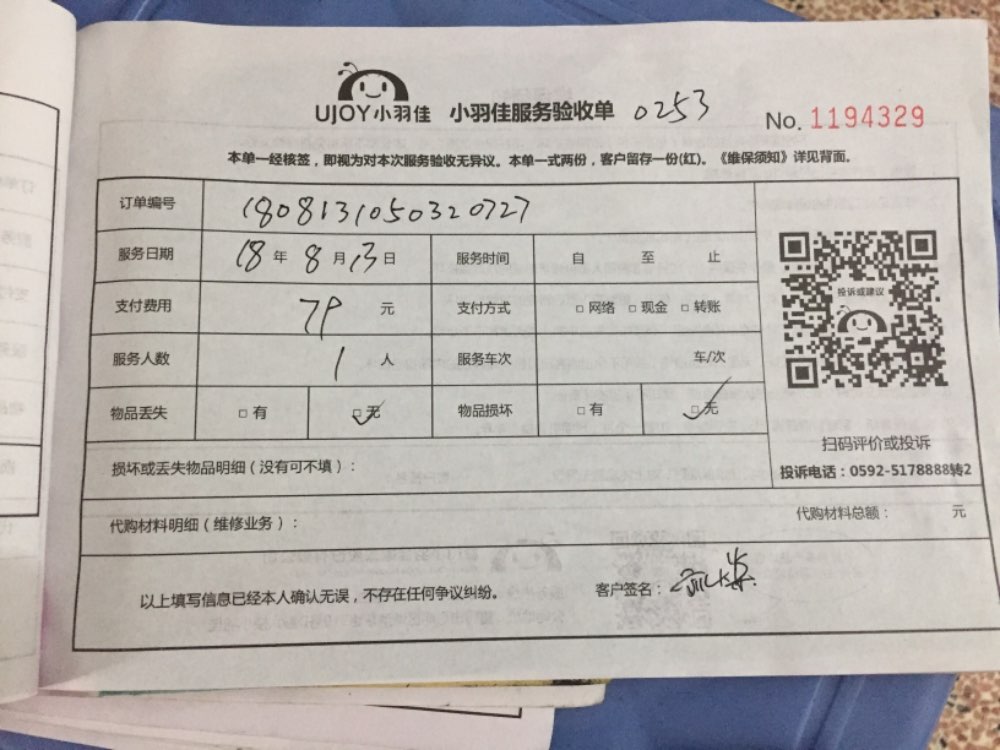 UJOY小羽佳 小羽佳服务验收单 0253 No. 1194329
本单一经核签，即视为对本次服务验收无异议。本单一式两份，客户留存一份(红)。《维保须知》详见背面。
订单编号 180813105032072​7
服务日期 18 年 8 月 13 日 服务时间 自 至 止
支付费用 79 元 支付方式 □ 网络 □ 现金 □ 转账
服务人数 1 人 服务车次 车/次
物品丢失 □ 有 □ 无 物品损坏 □ 有 □ 无
投诉或建议
扫码评价或投诉
投诉电话：0592-5178888转2
损坏或丢失物品明细（没有可不填）：
代购材料明细（维修业务）： 代购材料总额： 元
以上填写信息已经本人确认无误，不存在任何争议纠纷。 客户签名：